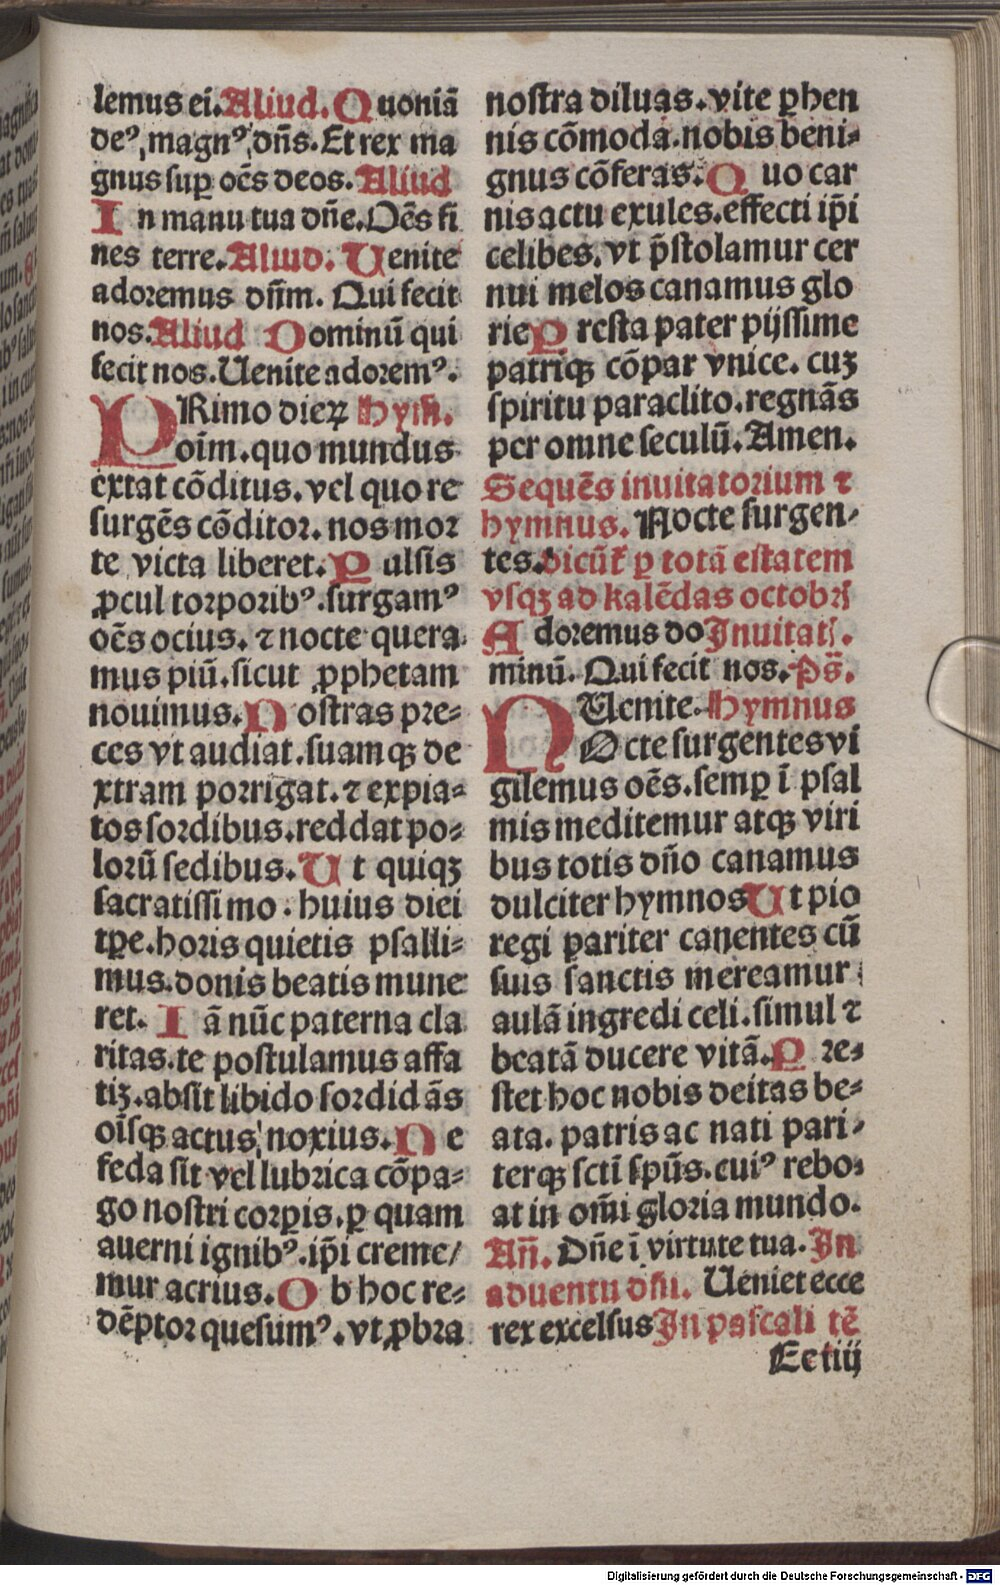 lemus ei. Aliud. Quoniā
deꝰ, magnꝰ dn̄s. Et rex ma
gnus suꝑ oēs deos. Aliud
In manu tua dn̄e. Oēs fi
nes terre. Aliud. Uenite
adoremus dn̄m. Qui fecit
nos. Aliud Dominū qui
fecit nos. Uenite adoremꝰ.
PRimo dieꝝ Hym̄.
oīm. quo mundus
extat cōditus. vel quo re
surgēs cōditor. nos mor
te victa liberet. Pulsis
ꝓcul torporibꝰ. surgamꝰ
oēs ocius. ⁊ nocte quera
mus piū. sicut ꝓphetam
nouimus. Nostras pre⸗
ces vt audiat. suamqꝫ de
xtram porrigat. ⁊ expia⸗
tos sordibus. reddat po⸗
lorū sedibus. Ut quiqꝫ
sacratissimo. huius diei
tꝑe. horis quietis psalli⸗
mus. donis beatis mune
ret. Iā nūc paterna cla
ritas. te postulamus affa
tiꝫ. absit libido sordidās
oīsqꝫ actus noxius. Ne
feda sit vel lubrica cōpa⸗
go nostri corꝑis. ꝑ quam
auerni ignibꝰ. ip̄i creme/
mur acrius. Ob hoc re⸗
dēptor quesumꝰ. vt ꝓbra
nostra diluas. vite ꝑhen
nis cōmoda. nobis beni⸗
gnus cōferas. Quo car
nis actu exules. effecti ip̄i
celibes. vt p̄stolamur cer
nui melos canamus glo
rie Presta pater pijssime
patriqꝫ cōpar vnice. cuꝫ
spiritu paraclito. regnās
per omne seculū. Amen.
Sequēs inuitatorium ⁊
hymnus. Nocte surgen⸗
tes. dicūt̄ ꝑ totā estatem
vsqꝫ ad kalēdas octobrꝭ
Adoremus do Inuitatꝭ.
minū. Qui fecit nos. Ps̄.
Uenite. Hymnus
NOcte surgentes vi
gilemus oēs. semꝑ ī psal
mis meditemur atqꝫ viri
bus totis dn̄o canamus
dulciter hymnos Ut pio
regi ꝑariter canentes cū
suis sanctis mereamur
aulā ingredi celi. simul ⁊
beatā ducere vitā. Pre⸗
stet hoc nobis deitas be⸗
ata. patris ac nati pari⸗
terqꝫ scti sp̄us. cuiꝰ rebo⸗
at in om̄i gloria mundo.
An̄. Dn̄e ī virtute tua. In
aduentu dn̄i. Ueniet ecce
rex excelsus In pascali tē
Ee iiij
Digitalisierung gefördert durch die Deutsche Forschungsgemeinschaft - DFG